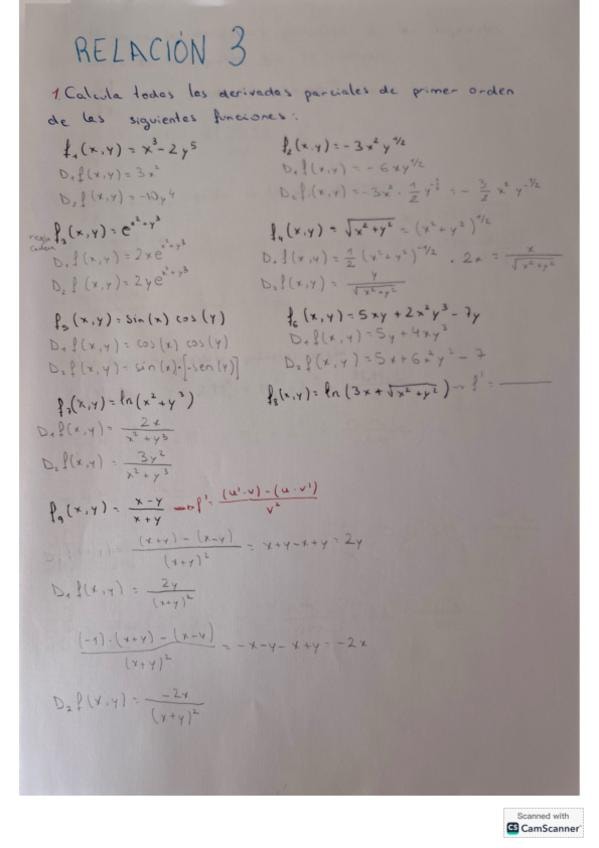 RELACIÓN 3
1. Calcula todas las derivadas parciales de primer orden
de las siguientes funciones:
f₁(x,y) = x³ - 2y⁵
D₁f(x,y) = 3x²
D₂f(x,y) = -10y⁴
f₂(x,y) = -3x²y^(1/2)
D₁f(x,y) = -6xy^(1/2)
D₂f(x,y) = -3x² · 1/2 y^(-1/2) = - 3/2 x² y^(-1/2)
regla cadena
f₃(x,y) = e^(x²+y³)
D₁f(x,y) = 2xe^(x²+y³)
D₂f(x,y) = 2ye^(x²+y³)
f₄(x,y) = √(x²+y²) = (x²+y²)^(1/2)
D₁f(x,y) = 1/2 (x²+y²)^(-1/2) · 2x = x/√(x²+y²)
D₂f(x,y) = y/√(x²+y²)
f₅(x,y) = sin(x) cos(y)
D₁f(x,y) = cos(x) cos(y)
D₂f(x,y) = sin(x)·[-sen(y)]
f₆(x,y) = 5xy + 2x²y³ - 7y
D₁f(x,y) = 5y + 4xy³
D₂f(x,y) = 5x + 6x²y² - 7
f₇(x,y) = ln(x²+y³)
D₁f(x,y) = 2x/(x²+y³)
D₂f(x,y) = 3y²/(x²+y³)
f₈(x,y) = ln(3x+√(x²+y²)) → f' = ———
f₉(x,y) = (x-y)/(x+y) → f' = ((u'·v)-(u·v'))/v²
((x+y)-(x-y))/(x+y)² = x+y-x+y = 2y
D₁f(x,y) = 2y/(x+y)²
((-1)·(x+y)-(x-y))/(x+y)² = -x-y-x+y = -2x
D₂f(x,y) = -2x/(x+y)²
Scanned with
CS CamScanner